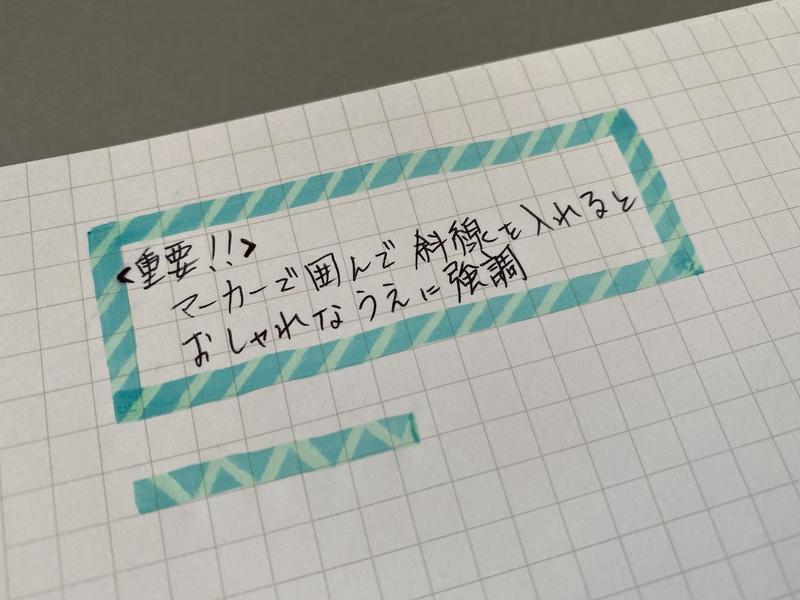 <重要!!>
マーカーで囲んで斜線を入れると
おしゃれなうえに強調